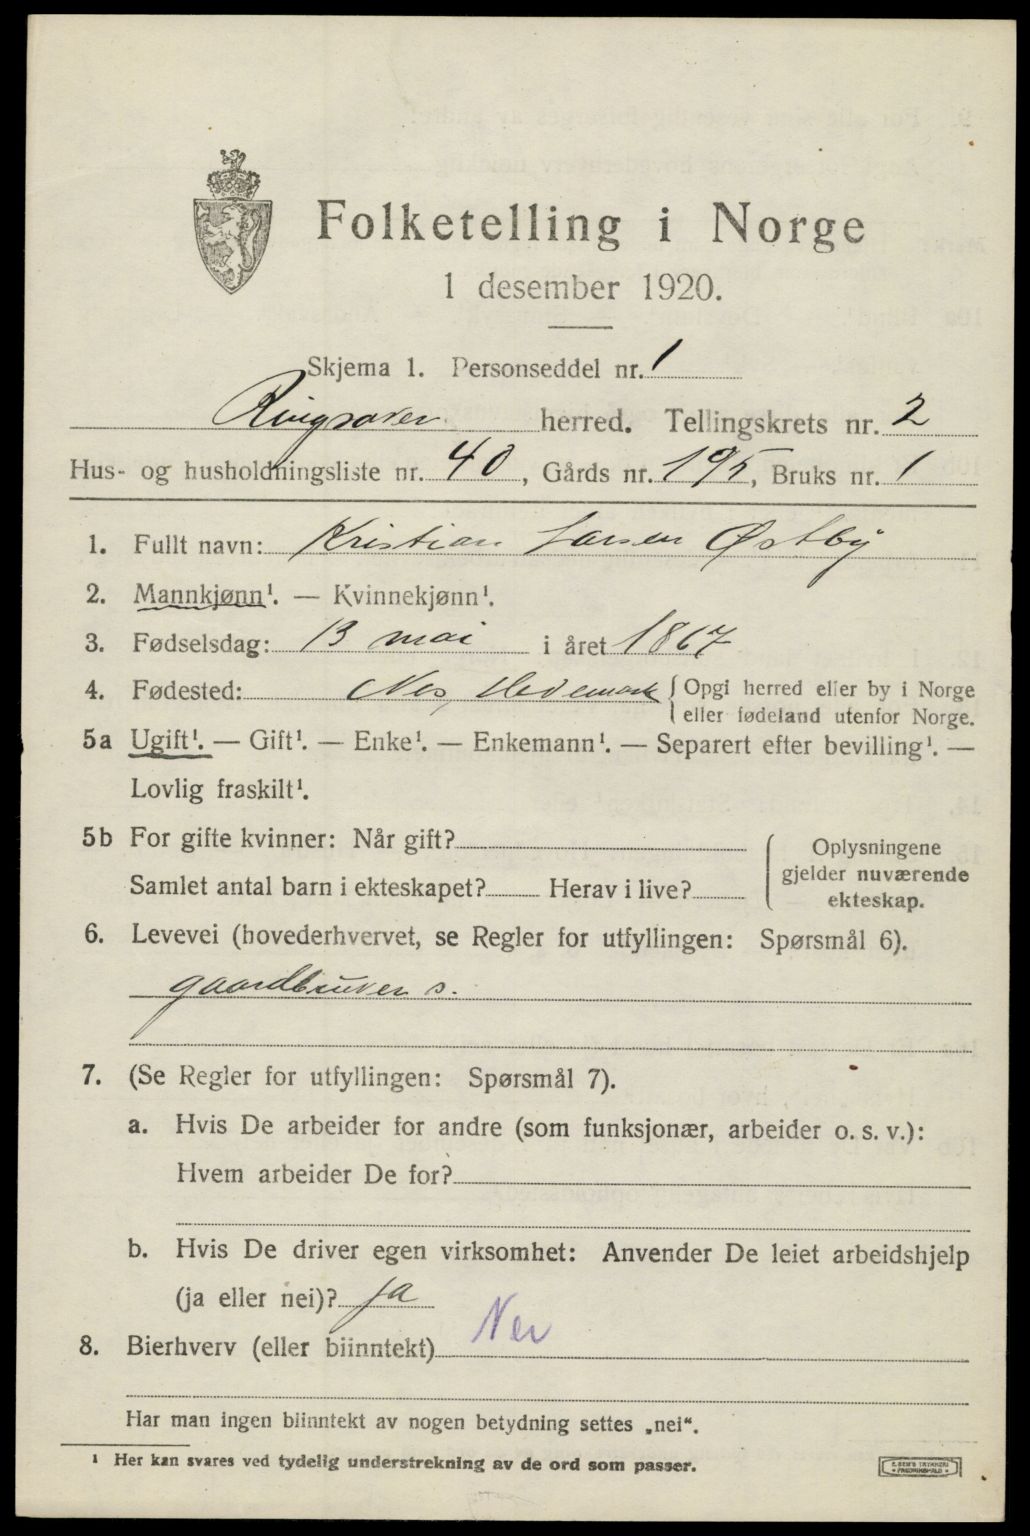 Folketelling i Norge
1 desember 1920.
Skjema 1. Personseddel nr. 1
Ringsaker herred. Tellingskrets nr. 2
Hus- og husholdningsliste nr. 40, Gårds nr. 195, Bruks nr. 1
1. Fullt navn: Kristian Larsen Østby
2. Mannkjønn¹. — Kvinnekjønn¹.
3. Fødselsdag: 13 mai i året 1867
4. Fødested: Nes, Hedemark { Opgi herred eller by i Norge
eller fødeland utenfor Norge.
5a Ugift¹. — Gift¹. — Enke¹. — Enkemann¹. — Separert efter bevilling¹. —
Lovlig fraskilt¹.
5b For gifte kvinner: Når gift?
Samlet antal barn i ekteskapet? Herav i live?
Oplysningene
gjelder nuværende
ekteskap.
6. Levevei (hovederhvervet, se Regler for utfyllingen: Spørsmål 6).
gaardbruker s.
7. (Se Regler for utfyllingen: Spørsmål 7).
a. Hvis De arbeider for andre (som funksjonær, arbeider o. s. v.):
Hvem arbeider De for?
b. Hvis De driver egen virksomhet: Anvender De leiet arbeidshjelp
(ja eller nei)? ja
8. Bierhverv (eller biinntekt) Nei
Har man ingen biinntekt av nogen betydning settes „nei“.
¹ Her kan svares ved tydelig understrekning av de ord som passer.